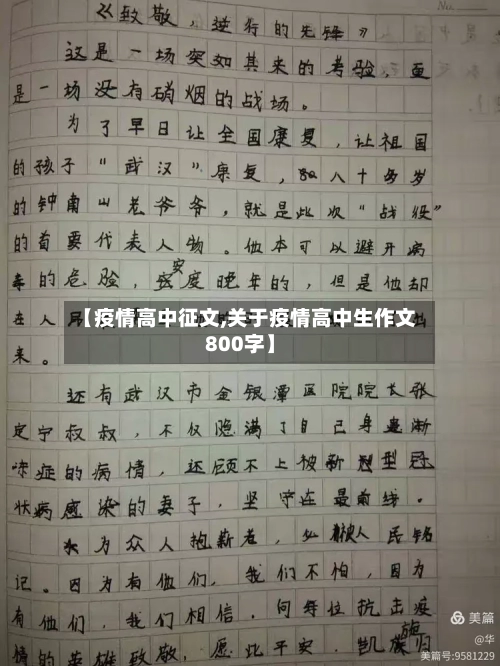 《致敬，逆行的先锋》
这是一场突如其来的考验，更
是一场没有硝烟的战场。
为了早日让全国康复，让祖国
的孩子“武汉”康复，八十多岁
的钟南山老爷爷，就是此次“战役”
的首要代表人物。他本可以避开病
毒的危险，安度晚年的，但是他却
在人
【疫情高中征文,关于疫情高中生作文
800字】
来。
还有武汉市金银潭医院院长张
定宇叔叔，不仅隐满了自己身患渐
冻症的病情，还顾不上被新型冠
状病感染的妻子，坚守在最前线。
为众人抱薪者，必被人民铭
记。因为有他们，我们不怕，因为
有他们，我们相信，向每位抗击疫
情的英雄致敬，愿此平安，凯旋归
美篇
@华
美篇号:9581229